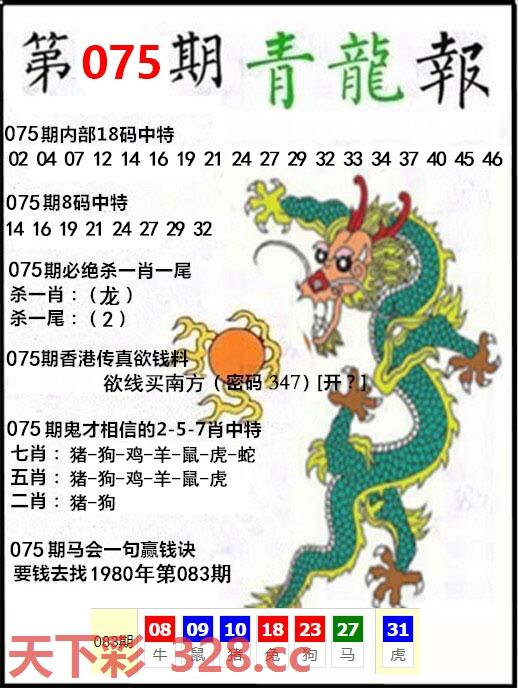 第075期青龍報
075期内部18码中特
02 04 07 12 14 16 19 21 24 27 29 32 33 34 37 40 45 46
075期8码中特
14 16 19 21 24 27 29 32
075期必绝杀一肖一尾
杀一肖：（龙）
杀一尾：（2）
075期香港传真欲钱料
欲线买南方（密码 347）[开？]
075期鬼才相信的2-5-7肖中特
七肖：猪-狗-鸡-羊-鼠-虎-蛇
五肖：猪-狗-鸡-羊-鼠-虎
二肖：猪-狗
075期马会一句赢钱诀
要钱去找1980年第083期
083期 08 09 10 18 23 27 31
牛 鼠 猪 兔 狗 马 虎
天下彩 328.cc